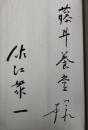 藤井養堂様
佐江衆一